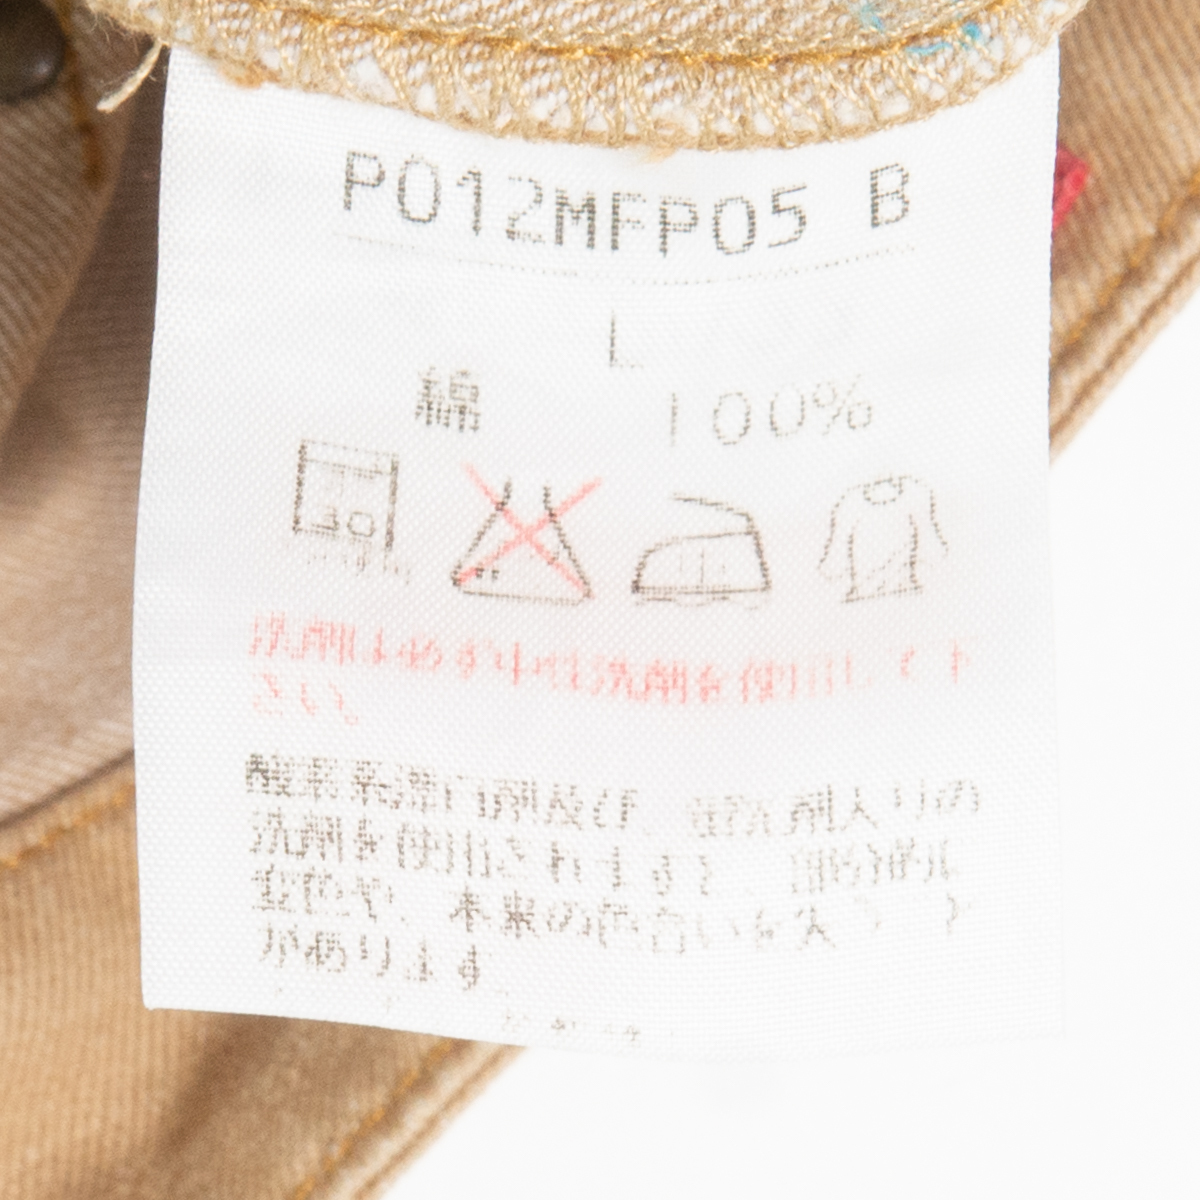 P012MFP05 B
L
綿 100%
30
洗剤は必ず中性洗剤を使用して下
さい。
酸素系漂白剤及び、蛍光剤入りの
洗剤を使用されますと、部分的に
変色や、本来の色合いを失うこと
があります